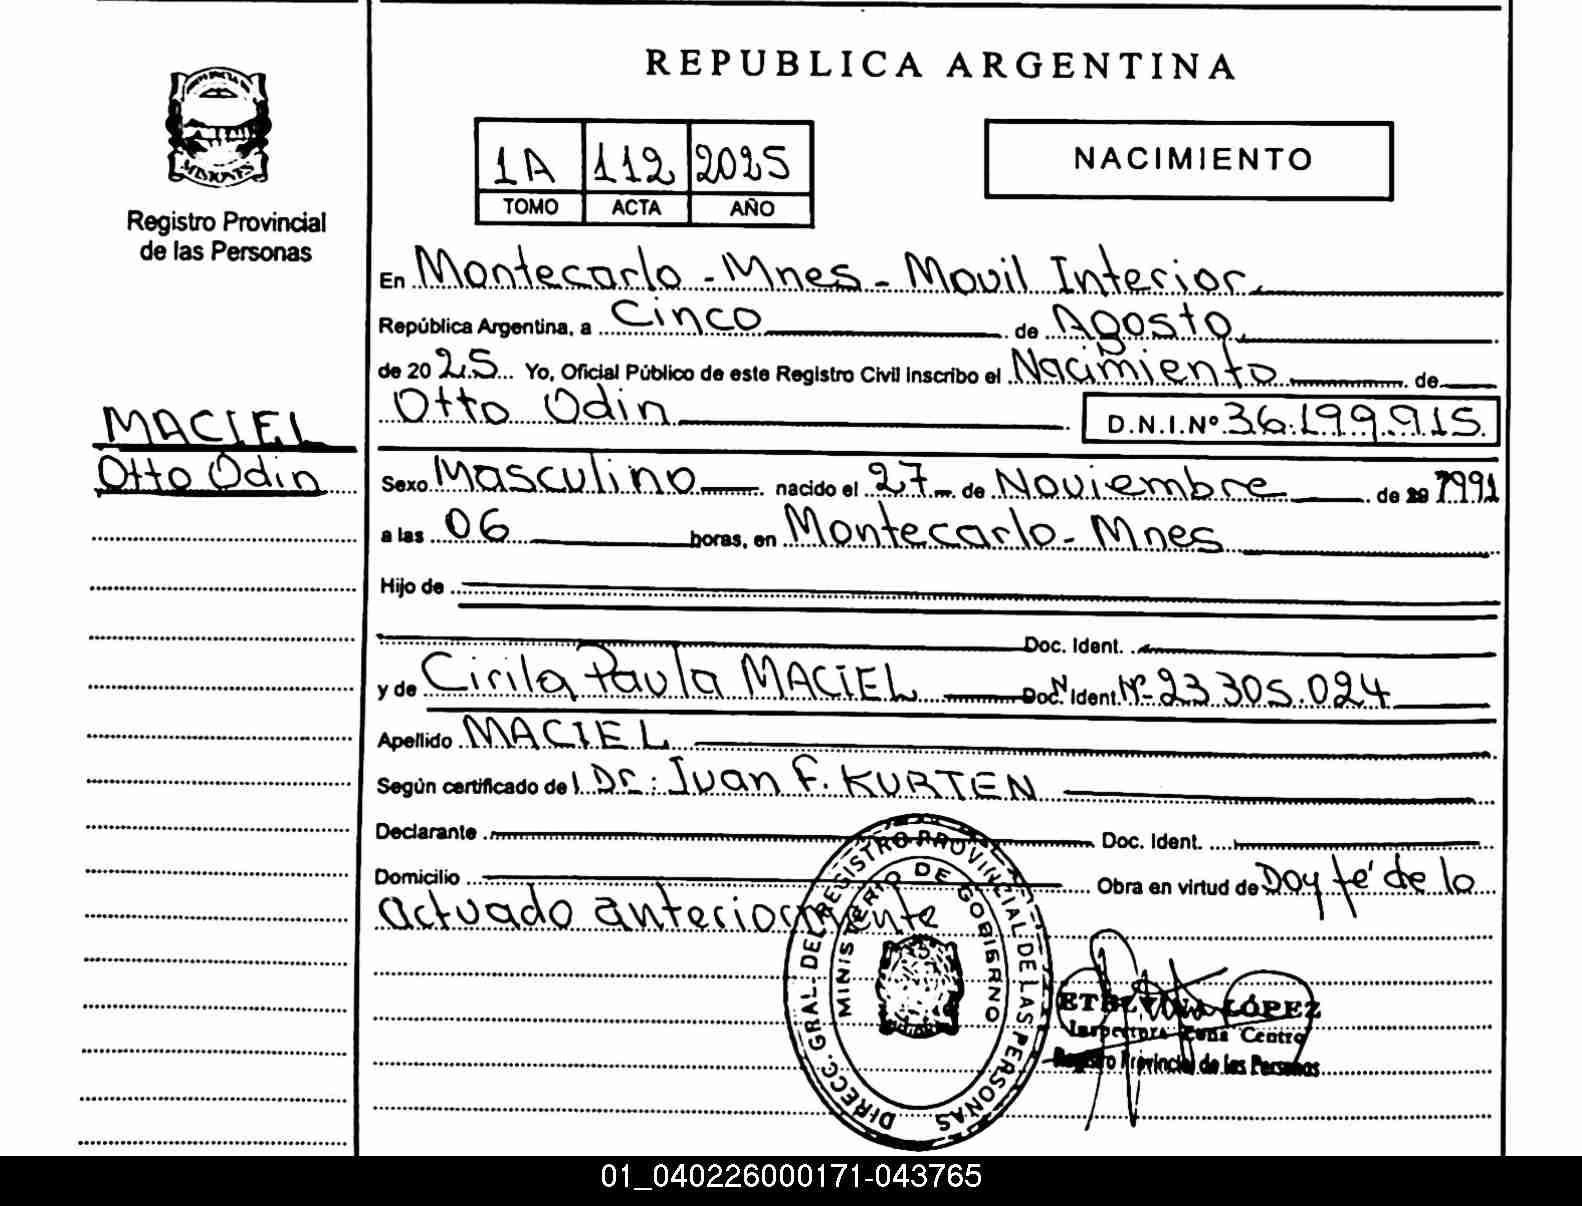 REPUBLICA ARGENTINA
MISIONES
Registro Provincial
de las Personas
1A 112 2025
TOMO ACTA AÑO
NACIMIENTO
En Montecarlo - Mnes - Movil Interior.
República Argentina, a Cinco de Agosto
de 2025 Yo, Oficial Público de este Registro Civil inscribo el Nacimiento de
Otto Odin D.N.I.Nº 36.199.915.
MACIEL
Otto Odin
Sexo Masculino nacido el 27 de Noviembre de 1991
a las 06 horas, en Montecarlo - Mnes
Hijo de
Doc. Ident.
y de Cirila Paula MACIEL Doc. Ident. Nº 23.305.024
Apellido MACIEL
Según certificado del Dr: Juan F. KURTEN
Declarante Doc. Ident.
Domicilio Obra en virtud de Doy fé de lo
actuado anteriormente
DIRECC. GRAL. DEL REGISTRO PROVINCIAL DE LAS PERSONAS
MINISTERIO DE GOBIERNO
LÓPEZ
Inspectora Zona Centro
Registro Provincial de las Personas
01_040226000171-043765